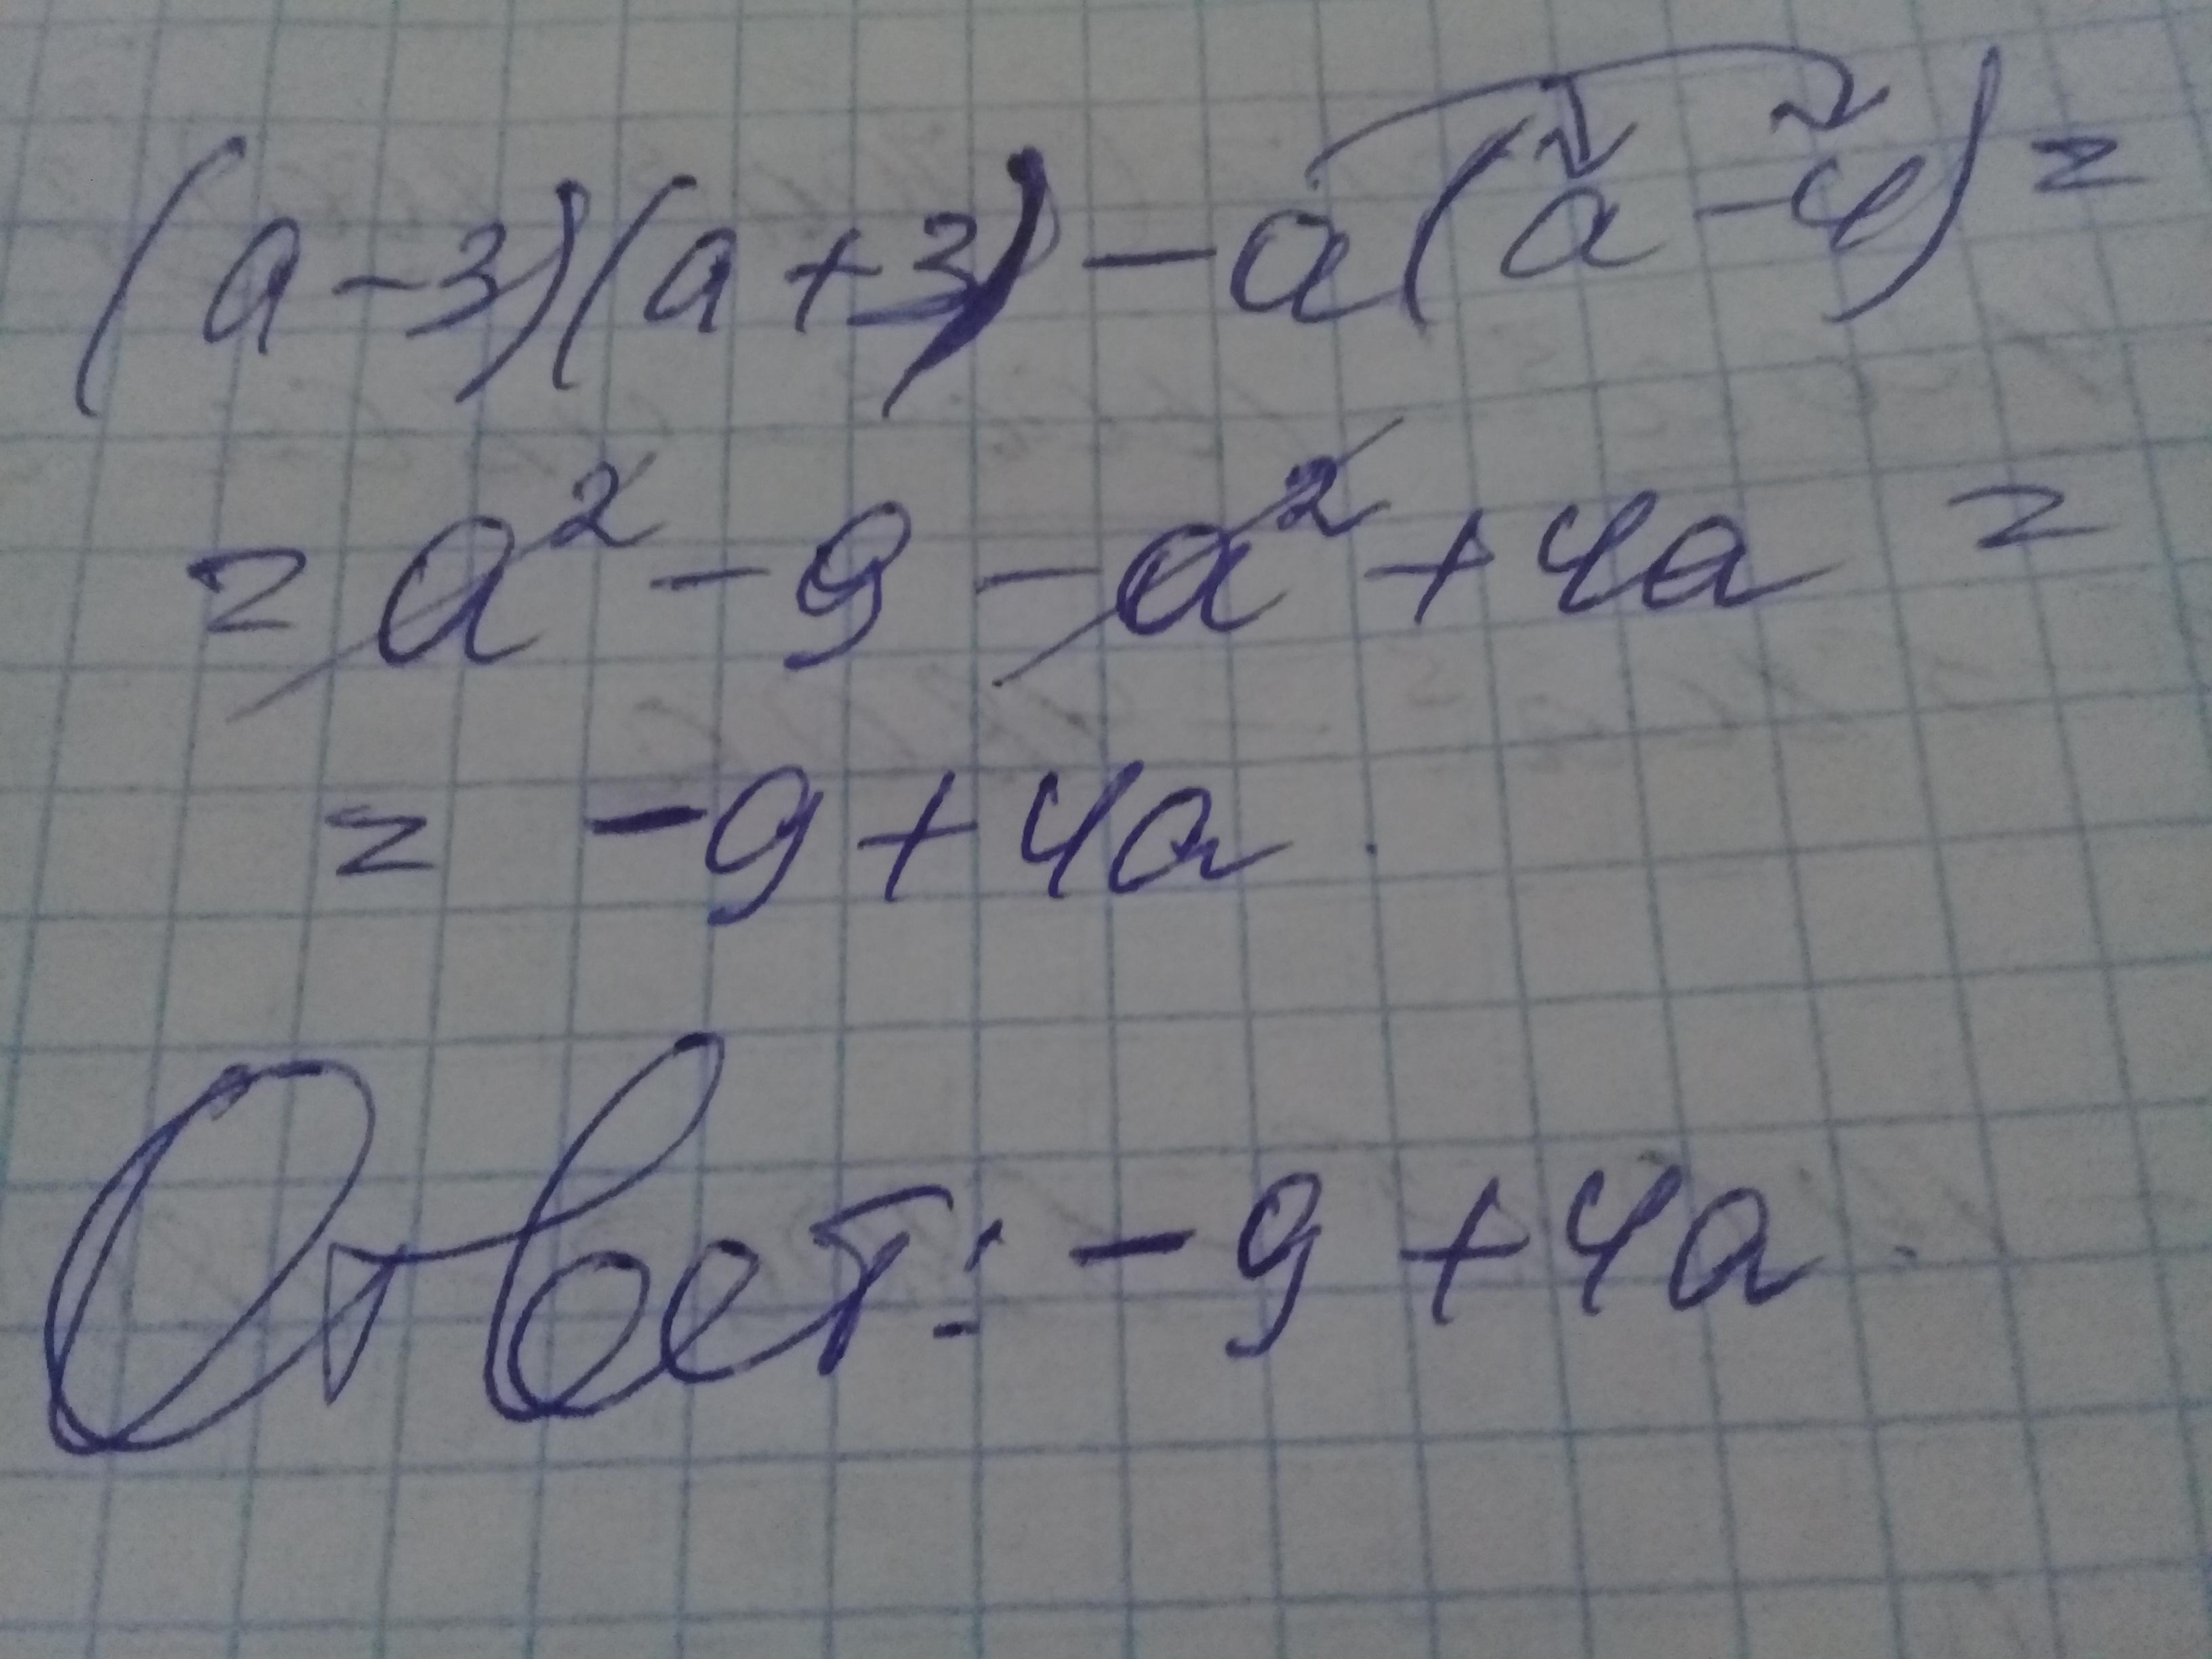 (a-3)(a+3)-a(a-4)=
=a²-9-a²+4a=
=-9+4a.
Ответ: -9+4a.